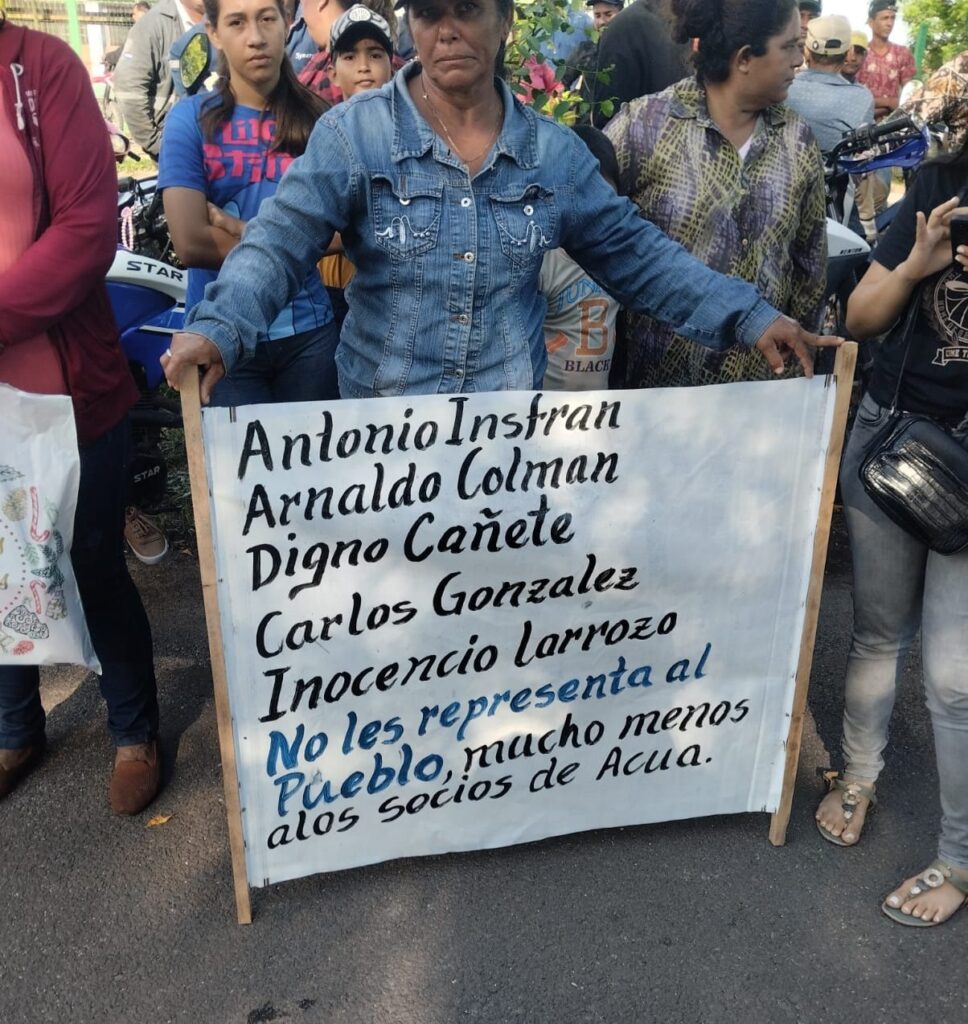 STAR
STAR
B
BLACK
Antonio Insfran
Arnaldo Colman
Digno Cañete
Carlos Gonzalez
Inocencio larrozo
No les representa al
Pueblo, mucho menos
alos socios de Acua.